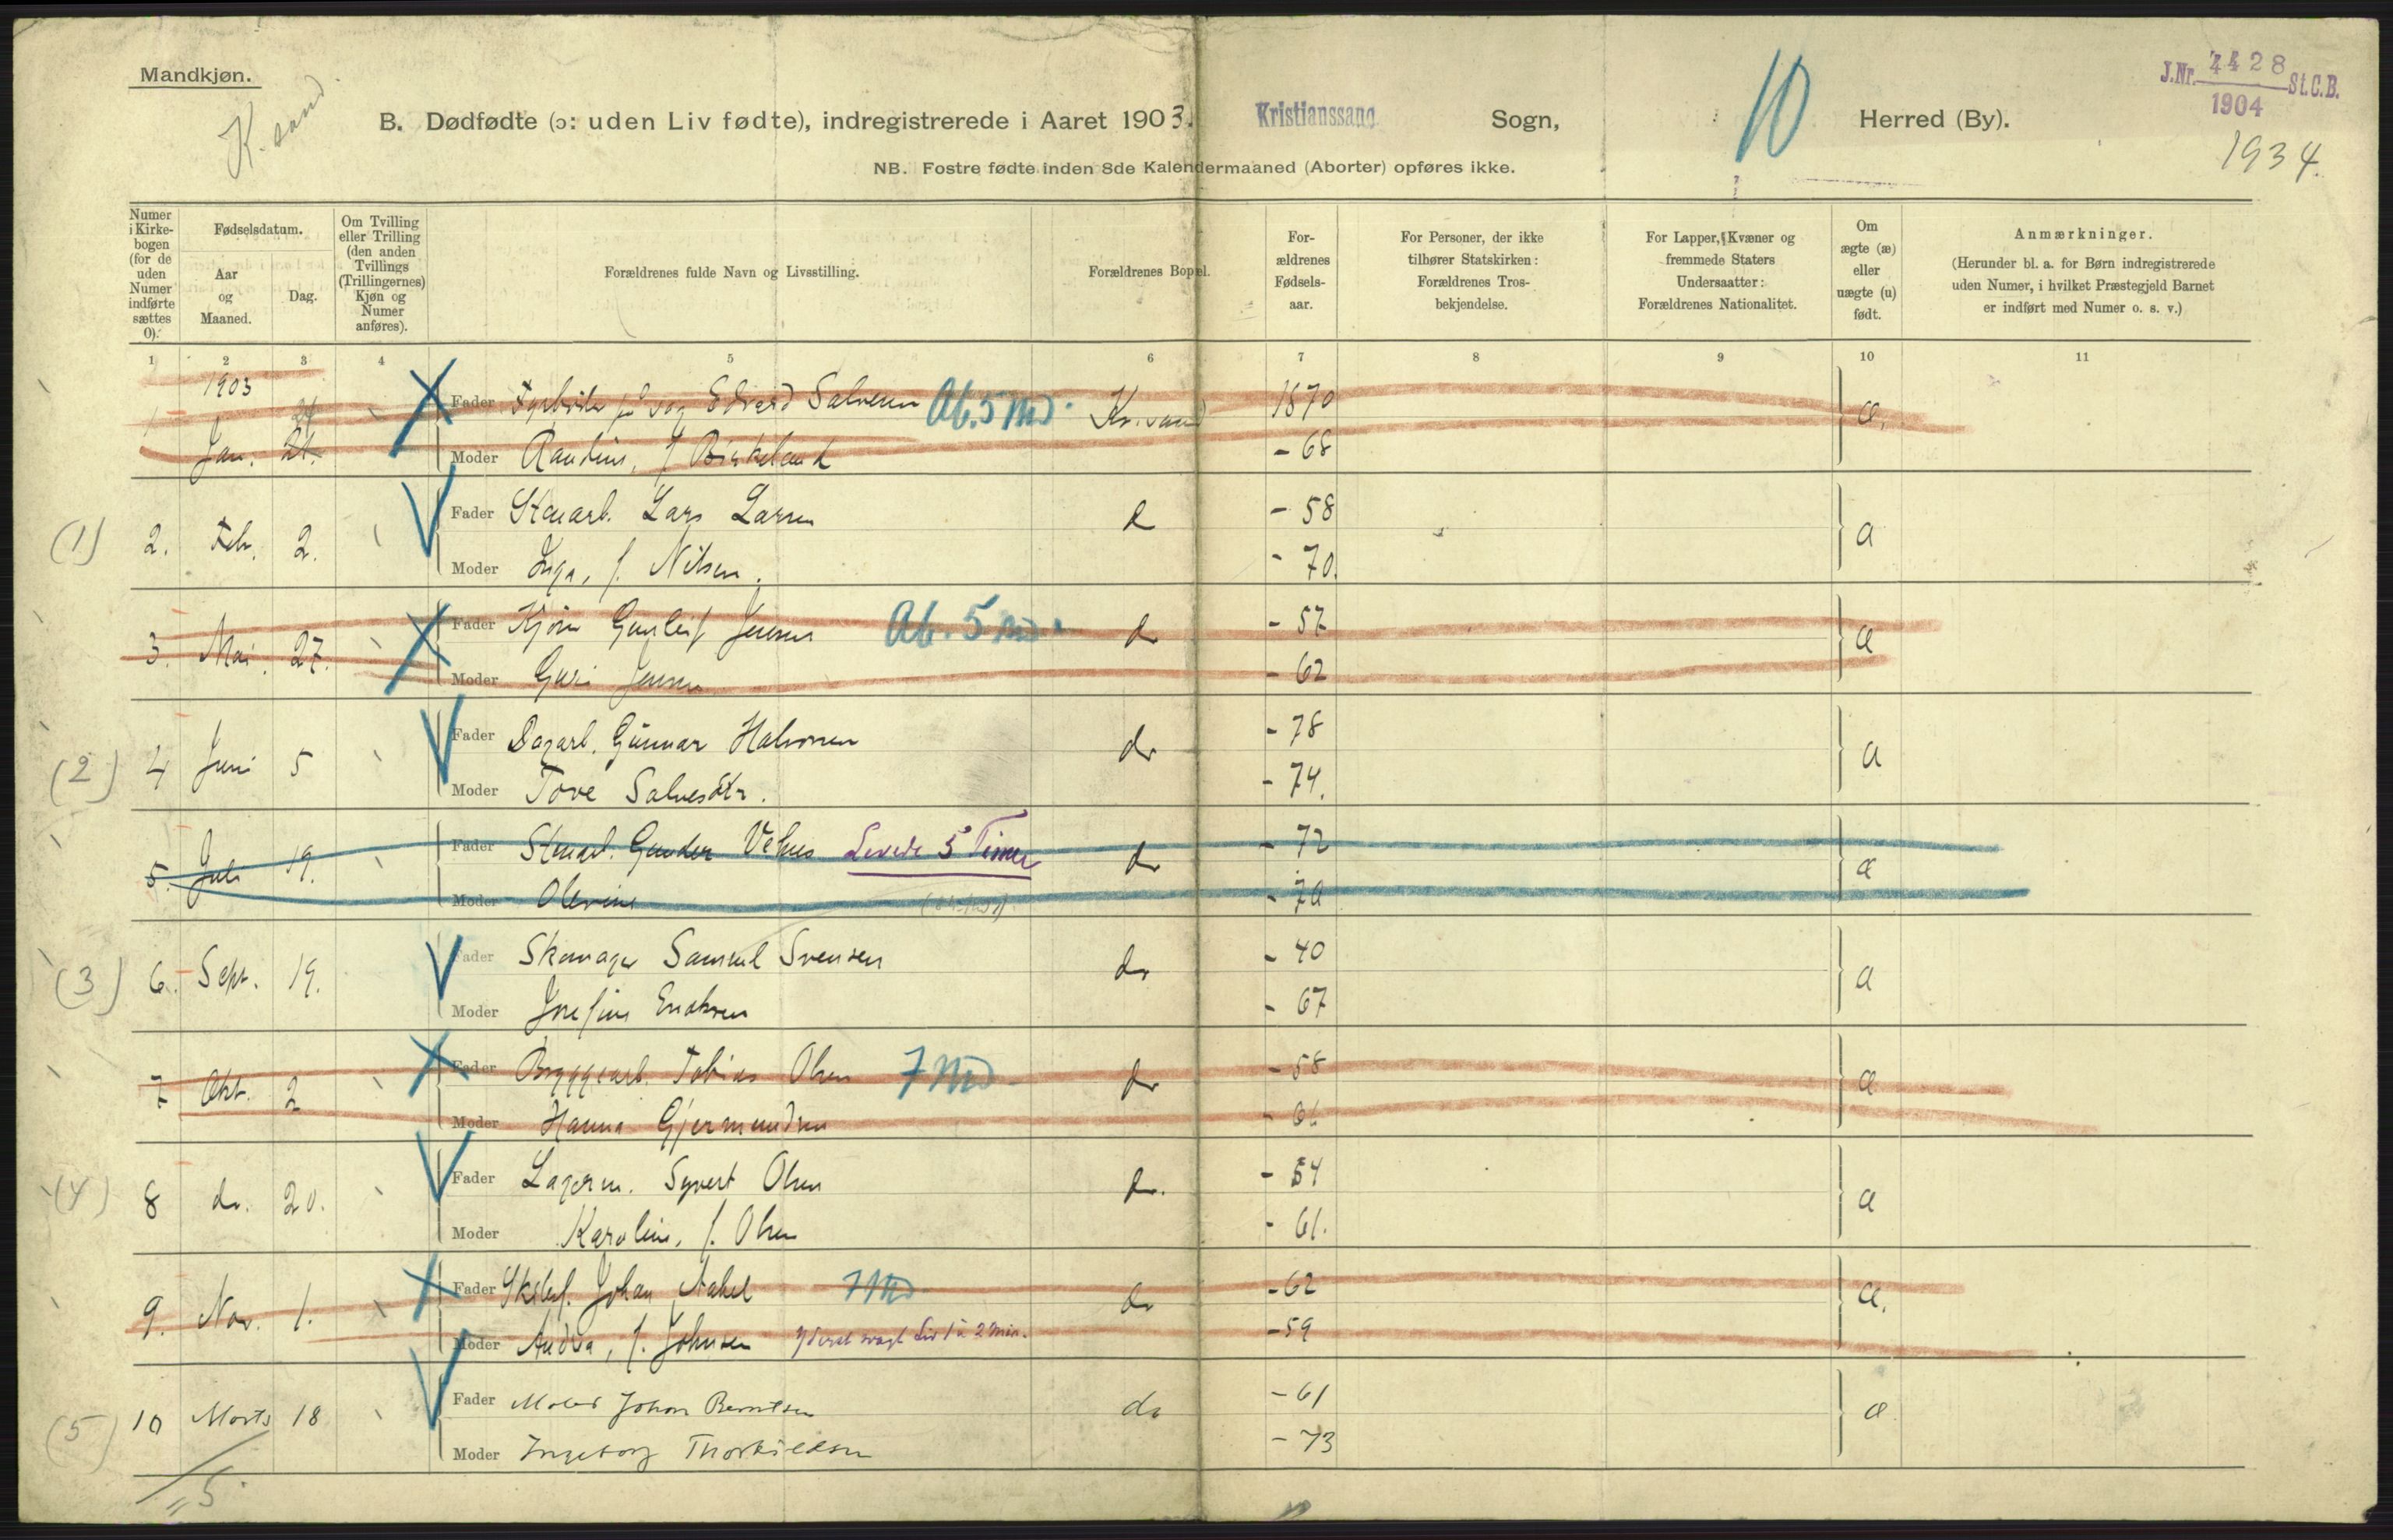 Mandkjøn.
K. sand
B. Dødfødte (ɔ: uden Liv fødte), indregistrerede i Aaret 1903. Kristianssand Sogn, 10 Herred (By).
J.Nr. 4428 St.C.B.
1904
1934.
NB. Fostre fødte inden 8de Kalendermaaned (Aborter) opføres ikke.
Numer i Kirke-bogen (for de uden Numer indførte sættes 0).
Fødselsdatum.
Aar og Maaned.
Dag.
Om Tvilling eller Trilling (den anden Tvillings (Trillingernes) Kjøn og Numer anføres).
Forældrenes fulde Navn og Livsstilling.
Forældrenes Bopel.
For-ældrenes Fødsels-aar.
For Personer, der ikke tilhører Statskirken: Forældrenes Tros-bekjendelse.
For Lapper, Kvæner og fremmede Staters Undersaatter: Forældrenes Nationalitet.
Om ægte (æ) eller uægte (u) født.
Anmærkninger.
(Herunder bl. a. for Børn indregistrerede uden Numer, i hvilket Præstegjeld Barnet er indført med Numer o. s. v.)
1 2 3 4 5 6 7 8 9 10 11
1903
Fader Edvard Salvesen Ab. 5 Md. Kr.sand 1870 æ.
Jan. 21. Moder Randine, f Birkeland - 68
(1) 2. Feb. 2. Fader Stenarb. Lars Larsen d - 58 æ
Moder Inga, f. Nilsen. - 70.
3. Mai. 27. Fader Gunleif Jensen Ab. 5 Md. do - 57 æ
Moder Guri Jensen - 62
(2) 4 Juni 5 Fader Dagarb. Gunnar Halvorsen do - 78 æ
Moder Tove Salvesdtr. - 74.
5. Juli 19. Fader Stenarb. Gunder Vehus Levede 5 Timer do - 72 æ
Moder Olevine - 70
(3) 6. Sept. 19. Fader Skomager Samuel Svensen do - 40 æ
Moder Josefine Enoksen - 67
7 Okt. 2 Fader Bryggearb. Tobias Olsen 7 Md. do - 58 æ
Moder Hanna Gjermundsen
(4) 8 do. 20. Fader Lagerm. Syvert Olsen do. - 54 æ
Moder Karoline, f. Olsen - 61.
9. Nov. 1. Fader Johan Nakel 7 Md do - 62 æ.
Moder Andrea, f. Johnsen yderst svagt Liv 1 à 2 Min. - 59
(5) 10 Marts 18 Fader Maler Johan Berntsen do - 61 æ
Moder Ingeborg Thorkildsen - 73
5